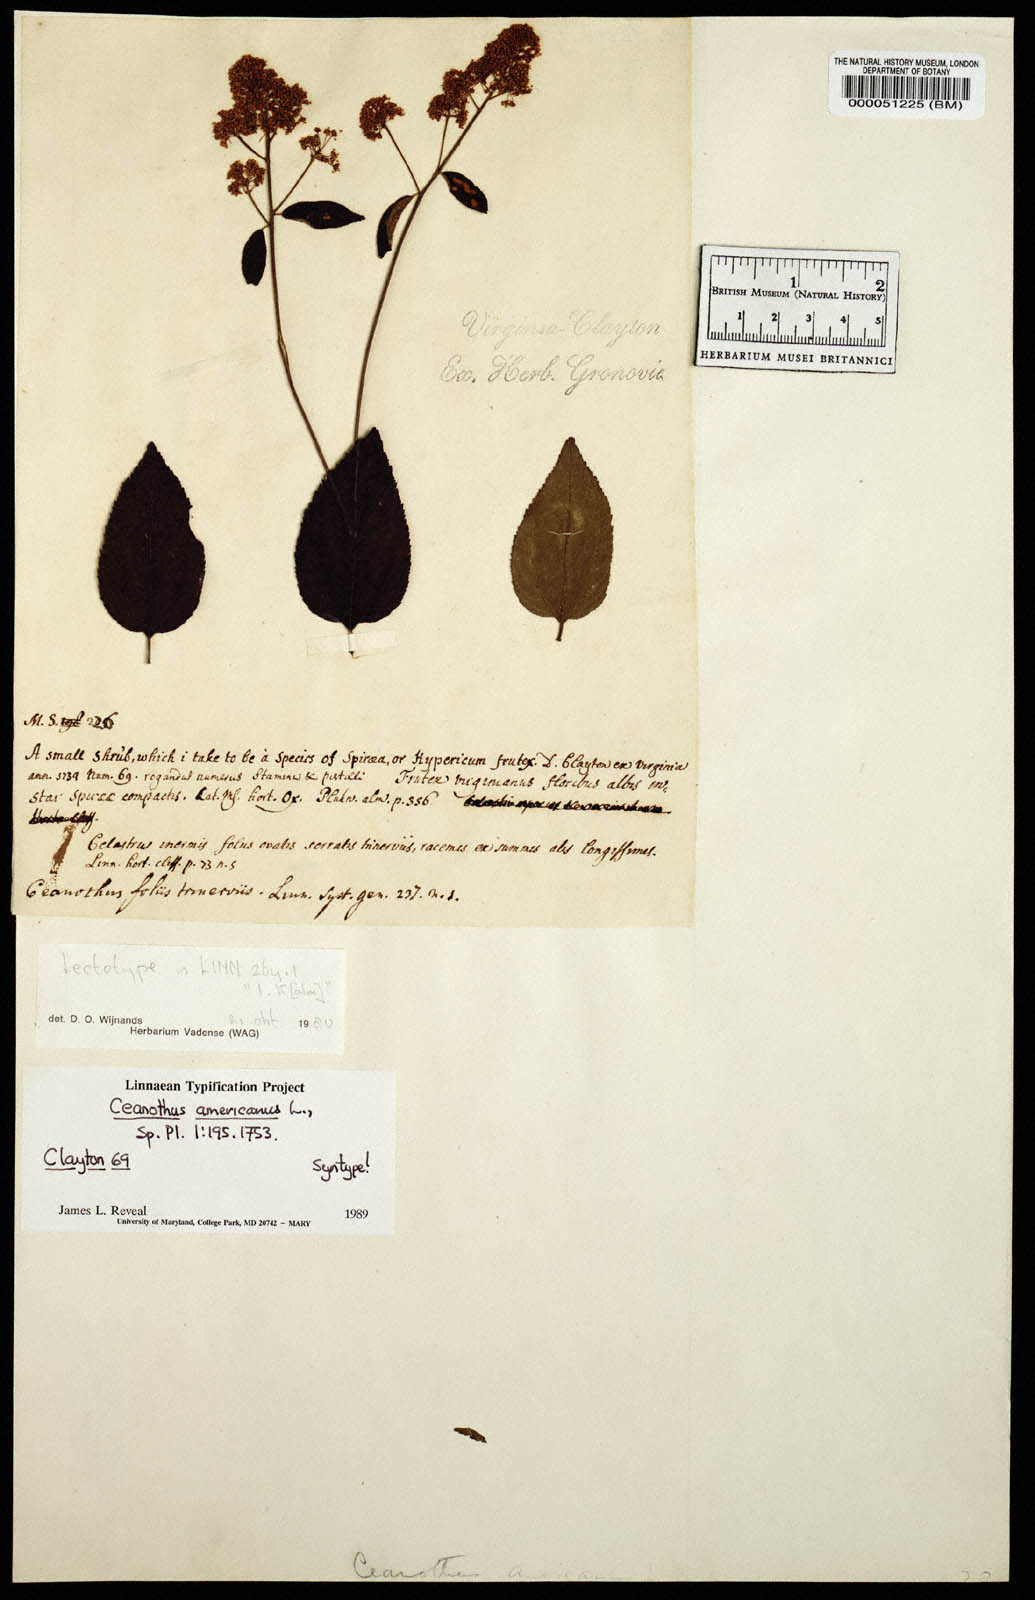 THE NATURAL HISTORY MUSEUM, LONDON
DEPARTMENT OF BOTANY
000051225 (BM)
1 2
BRITISH MUSEUM (NATURAL HISTORY)
1 2 3 4 5
HERBARIUM MUSEI BRITANNICI
Virginia Clayton
Ex. Herb. Gronovii
M. S. 226
A small shrub, which i take to be a species of Spiræa, or Hypericum frutex. D. Clayton ex Virginia
ann. 1734 Num. 69. rogandus numerus Stamine & pistilli Frutex virginianus floribus albis in
star Spirææ compactis. Cat. Ms. hort. Ox. Plukn. alm. p. 356
Celastrus inermis foliis ovatis serratis trinerviis, racemis ex summis alis longissimis.
Linn. hort. cliff. p. 73 n. 5
Ceanothus foliis trinerviis. Linn. Syst. gen. 237. n. 1.
Lectotype is LINN 264.1
"1. K[alm]"
det. D. O. Wijnands 1980
Herbarium Vadense (WAG)
Linnaean Typification Project
Ceanothus americanus L.,
Sp. Pl. 1:195. 1753.
Clayton 69 Syntype!
James L. Reveal 1989
University of Maryland, College Park, MD 20742 – MARY
Ceanothus